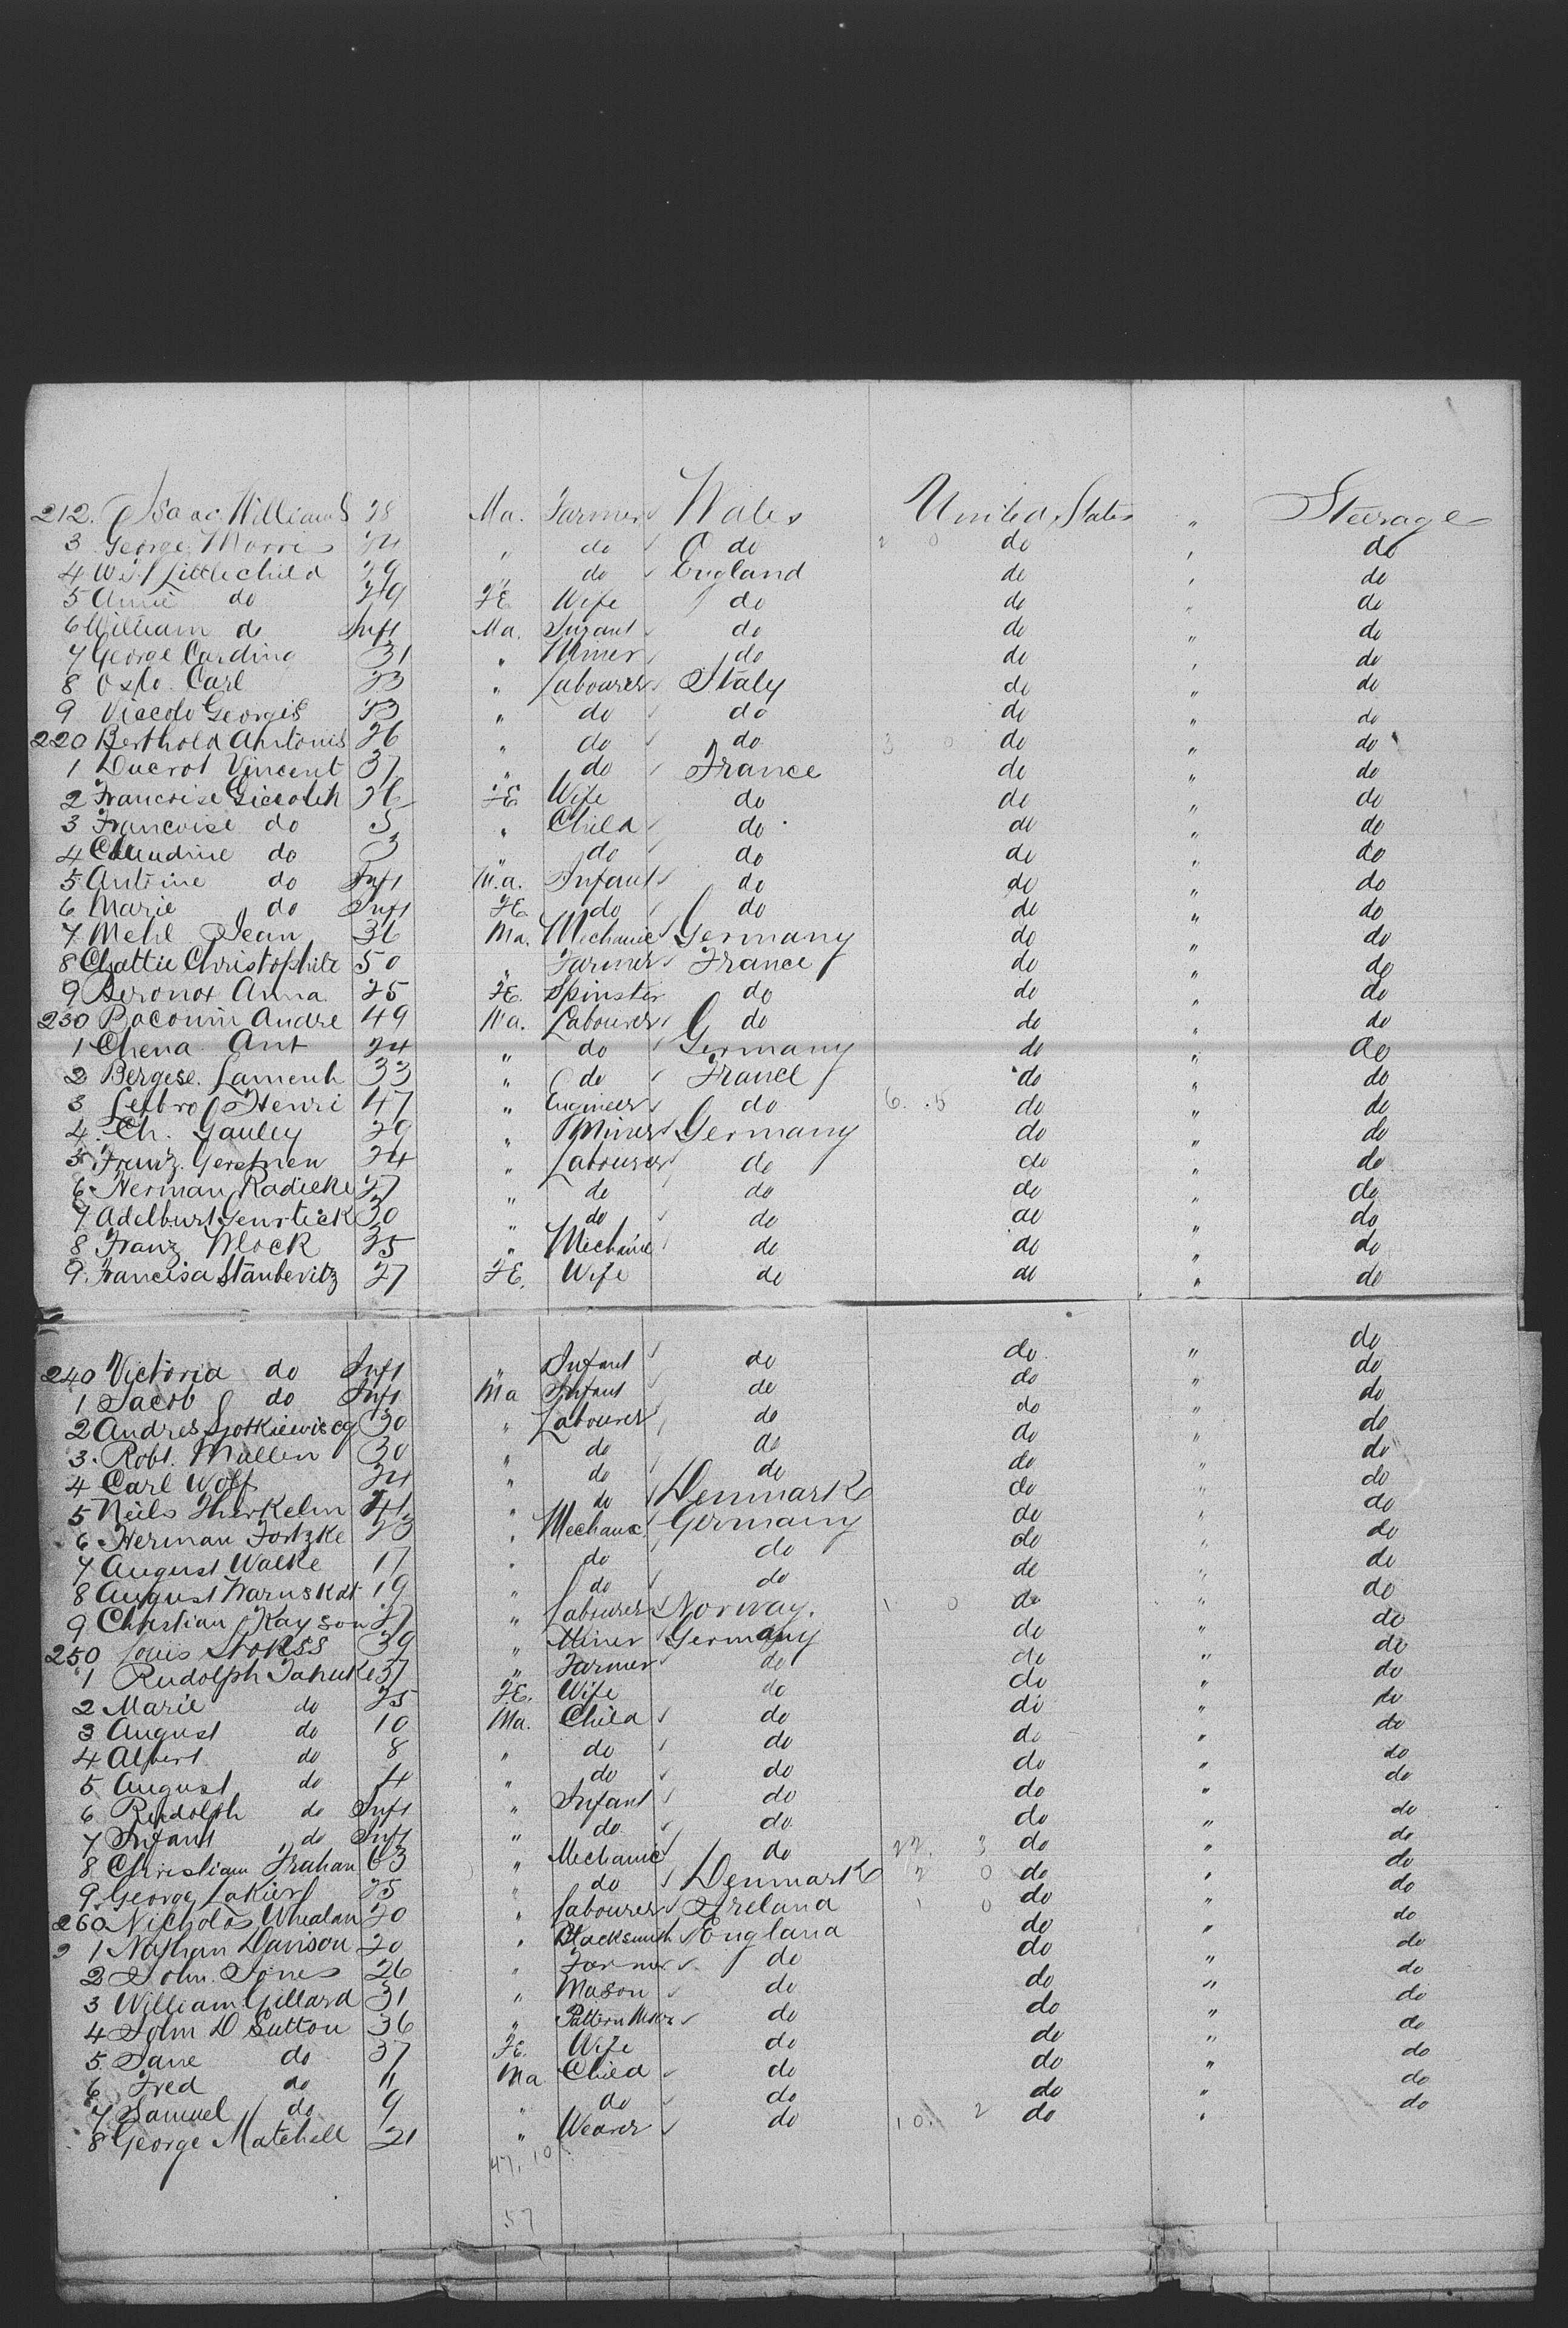 212. Isaac Williams 28 Ma. Farmer Wales United States " Steerage
3 George Morris 24 " do do 2 0 do " do
4 Wm Littlechild 29 " do England do " do
5 Annie do 29 FE Wife do do " do
6 William do Inft Ma. Infant do do " do
7 George Carding 31 " Miner do do " do
8 Oxlo Carl 23 " Labourer Italy do " do
9 Viccolo Georgis 23 " do do do " do
220 Berthold Antonis 26 " do do 3 0 do " do
1 Ducrot Vincent 37 " do France do " do
2 Francoise Giccoteh 36 FE Wife do do " do
3 Francoise do 5 " Child do do " do
4 Claudine do 3 " do do do " do
5 Antoine do Inft Ma. Infant do do " do
6 Marie do Inft FE. do do do " do
7 Mehl Jean 36 Ma. Mechanic Germany do " do
8 Chattie Christophite 50 " Farmer France do " do
9 Beronox Anna 25 FE. Spinster do do " do
230 Pacouin Andre 49 Ma. Labourer do do " do
1 Chena Ant 24 " do Germany do " do
2 Bergese Lamenh 33 " do France do " do
3 Lebro Henri 47 " Engineer do 6. .5 do " do
4. Ch. Gauley 29 " Miner Germany do " do
5 Franz. Gerstnen 24 " Labourer do do " do
6. Herman Radicke 27 " do do do " do
7 Adelburt Genrtick 30 " do do do " do
8 Franz Mock 35 " Mechanic do do " do
9. Francisa Stanbevitz 27 FE. Wife do do " do
240 Victoria do Inft " Infant do do " do
1 Jacob do Inft Ma Infant do do " do
2 Andres Sjotkiewiccg 30 " Labourer do do " do
3. Robt. Mullen 30 " do do do " do
4 Carl Wolf 24 " do do do " do
5 Neils Therkelin 41 " do Denmark do " do
6 Herman Fortzke 23 " Mechanic Germany do " do
7 August Walke 17 " do do do " do
8 August Warnskdt 19 " do do do " do
9 Christian Kayson 27 " Labourer Norway. 1 0 do " do
250 Louis Stokss 39 " Miner Germany do " do
1 Rudolph Tahuke 37 " Farmer do do " do
2 Marie do 25 FE. Wife do do " do
3 August do 10 Ma. Child do do " do
4 Albert do 8 " do do do " do
5 August do 4 " do do do " do
6 Rudolph do Inft " Infant do do " do
7 Infant do Inft " do do do " do
8 Christian Frahan 63 " Mechanic do 22. 3 do " do
9 George Lakierl 25 " do Denmark 2 0 do " do
260 Nicholas Whealan 20 " Labourer Ireland 1 0 do " do
1 Nathan Davison 20 " Blacksmith England do " do
2 John Jones 26 " Farmer do do " do
3 William Gillard 31 " Mason do do " do
4 John D Sutton 36 " Pattern Mkr do do " do
5 Jane do 37 FE. Wife do do " do
6 Fred do 11 Ma Child do do " do
7 Samuel do 9 " do do do " do
8 George Matchell 21 " Weaver do 10. 2 do " do
47, 10
57